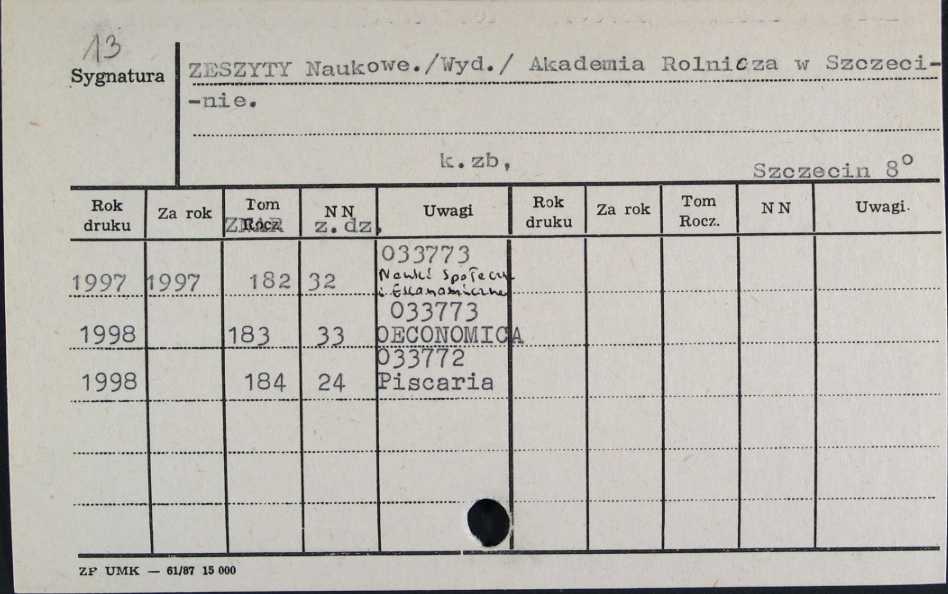 13
Sygnatura
ZESZYTY Naukowe./Wyd./ Akademia Rolnicza w Szczeci-
-nie.
k.zb,
Szczecin 8⁰
Rok druku Za rok Tom Rocz. N N z.dz. Uwagi Rok druku Za rok Tom Rocz. N N Uwagi.
033773
Nauki Społeczn
1997 1997 182 32 i Ekonomiczne
033773
1998 183 33 OECONOMICA
033772
1998 184 24 Piscaria
ZP UMK — 61/87 15 000